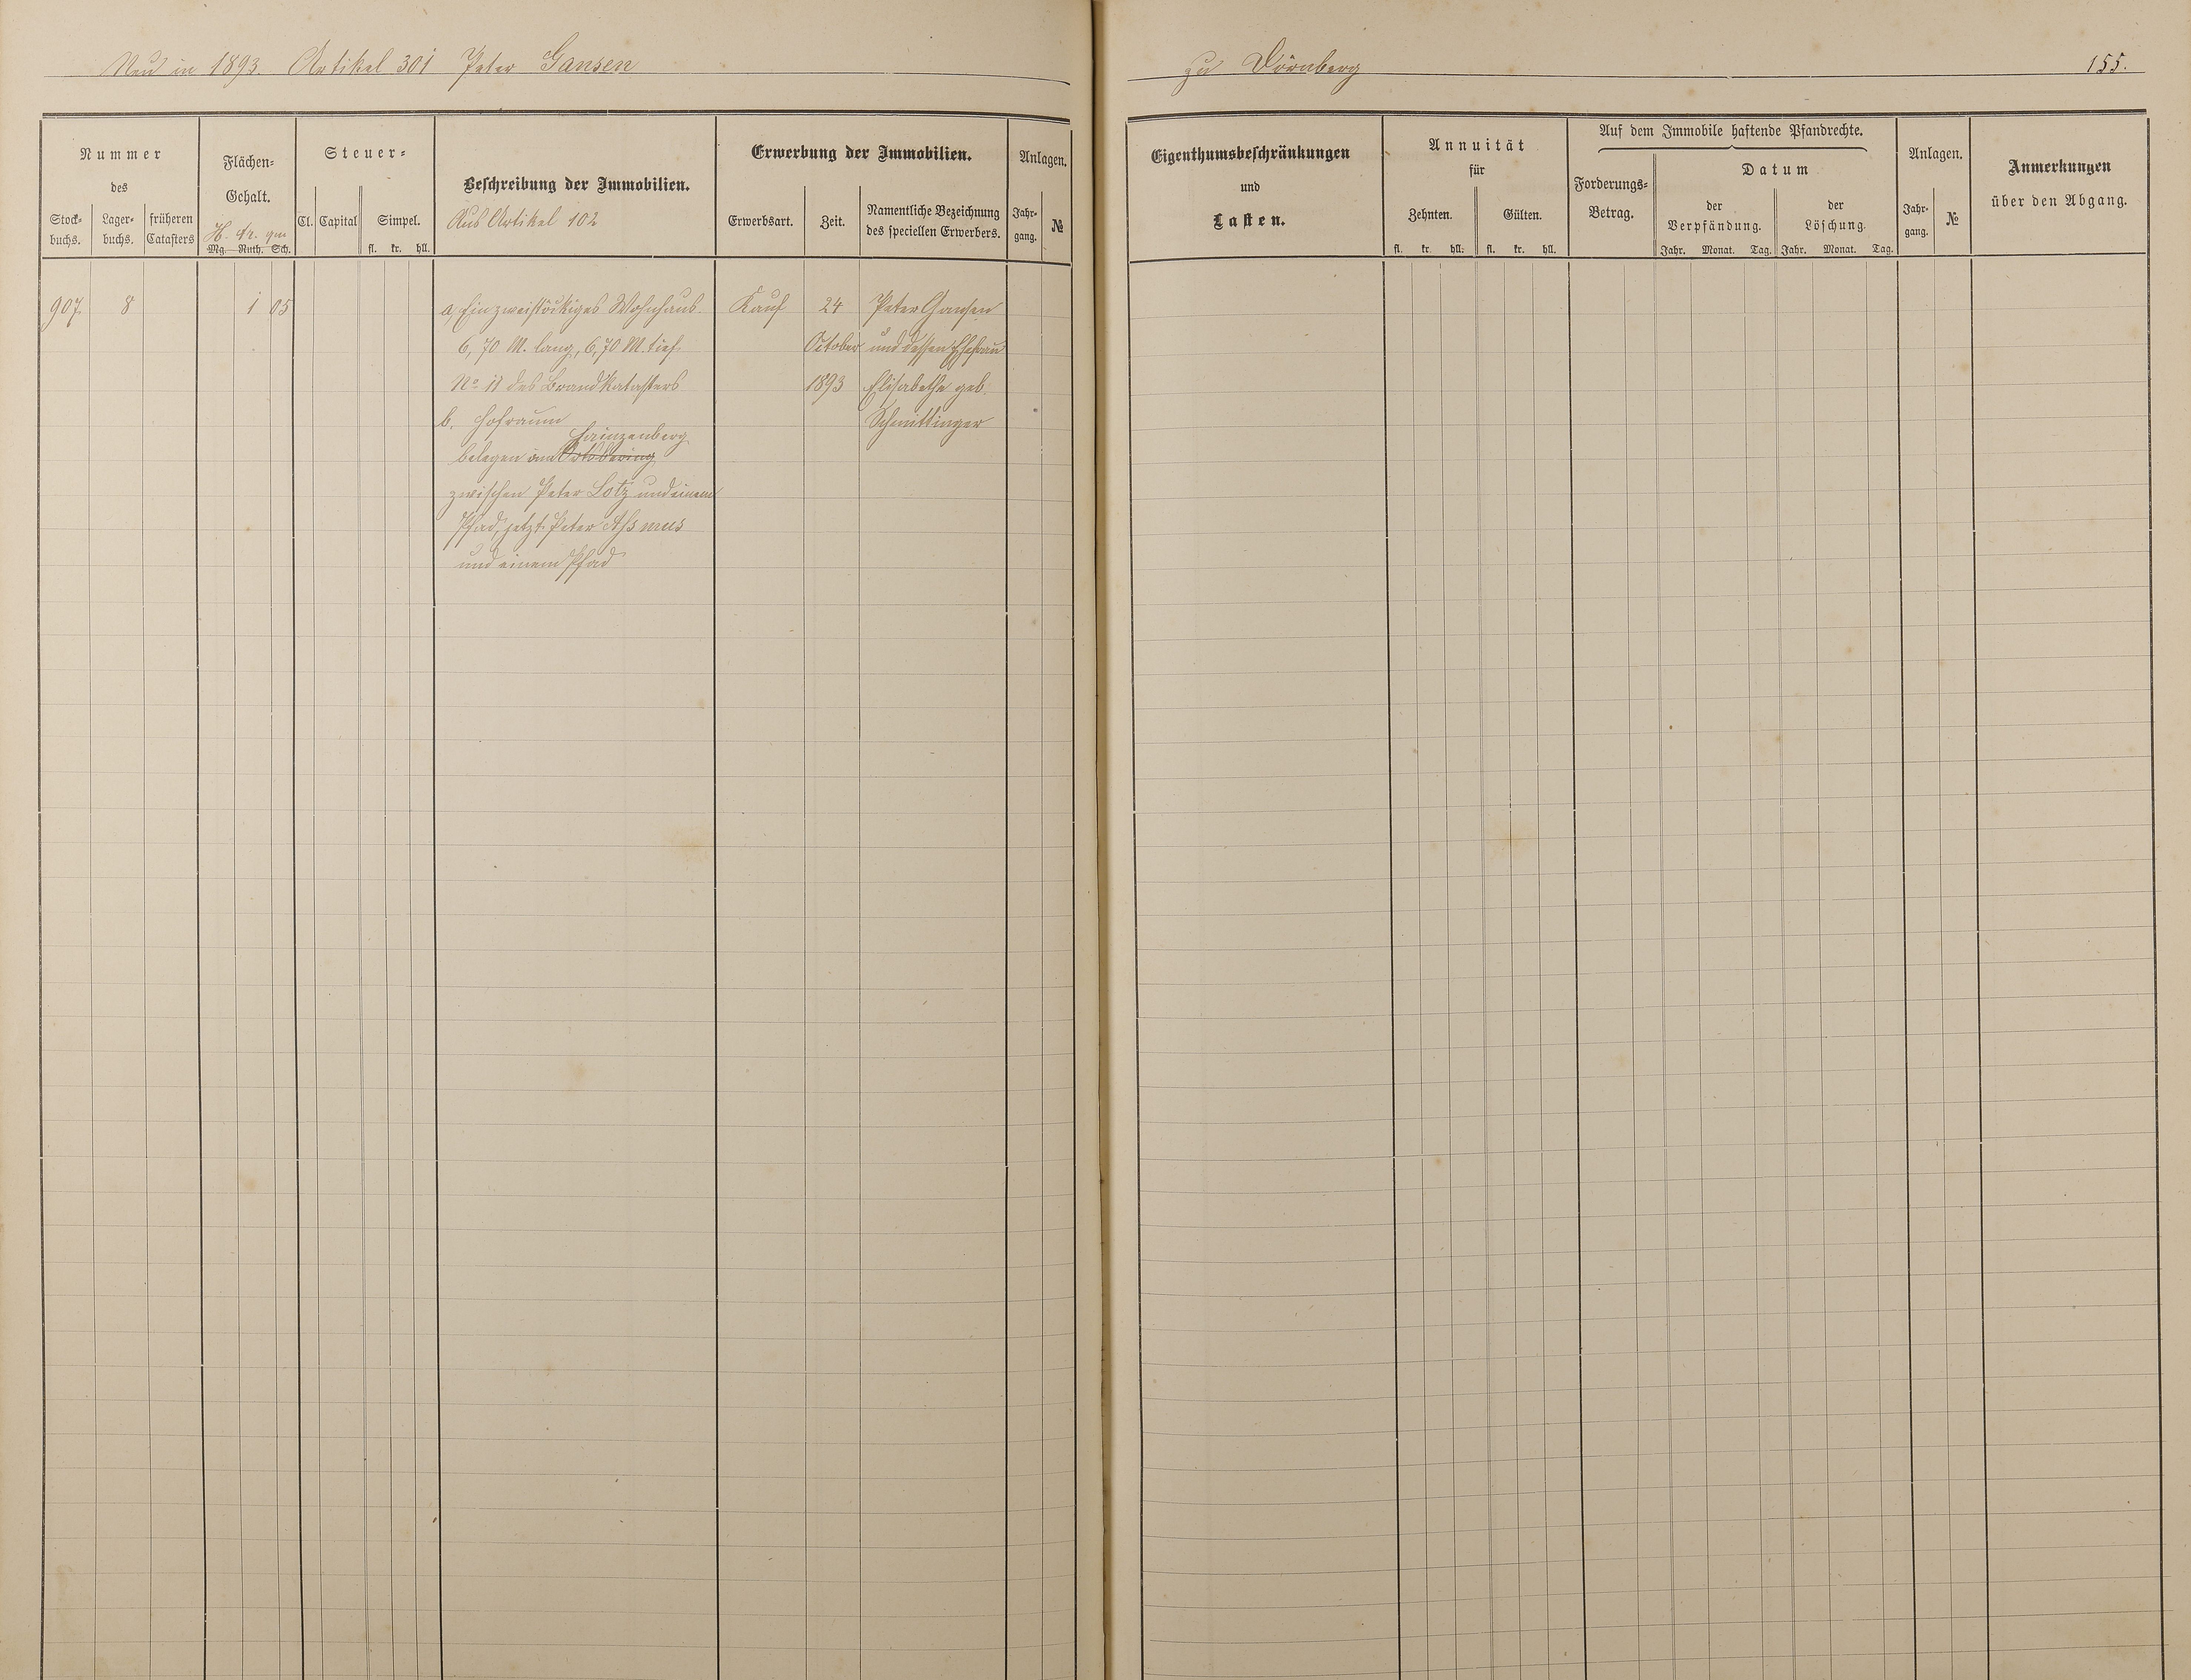 Neu in 1893. Artikel 301 Peter Gansen
Nummer
des
Stock-
buchs.
Lager-
buchs.
früheren
Catasters
Flächen-
Gehalt.
H. Ar. qm
Mg. Ruth. Sch.
Steuer-
Cl. Capital Simpel.
fl. kr. hll.
Beschreibung der Immobilien.
Aus Artikel 102
Erwerbung der Immobilien.
Erwerbsart. Zeit.
Namentliche Bezeichnung
des speciellen Erwerbers.
Anlagen.
Jahr-
gang.
№
907. 8 1 05 a, Ein zweistöckiges Wohnhaus Kauf 24 Peter Gansen
6,70 M. lang, 6,70 M. tief. October und dessen Ehefrau
No 11 des Brandkatasters 1893 Elisabethe geb.
b. Hofraum Schmittinger
Hainzenberg
belegen im Ortsbering
zwischen Peter Lotz und einem
Pfad, jetzt Peter Assmus
und einem Pfad
zu Dörnberg 155.
Eigenthumsbeschränkungen
und
Lasten.
Annuität
für
Zehnten. Gülten.
fl. kr. hll. fl. kr. hll.
Auf dem Immobile haftende Pfandrechte.
Forderungs-
Betrag.
Datum
der
Verpfändung.
Jahr. Monat. Tag.
der
Löschung.
Jahr. Monat. Tag.
Anlagen.
Jahr-
gang.
№
Anmerkungen
über den Abgang.